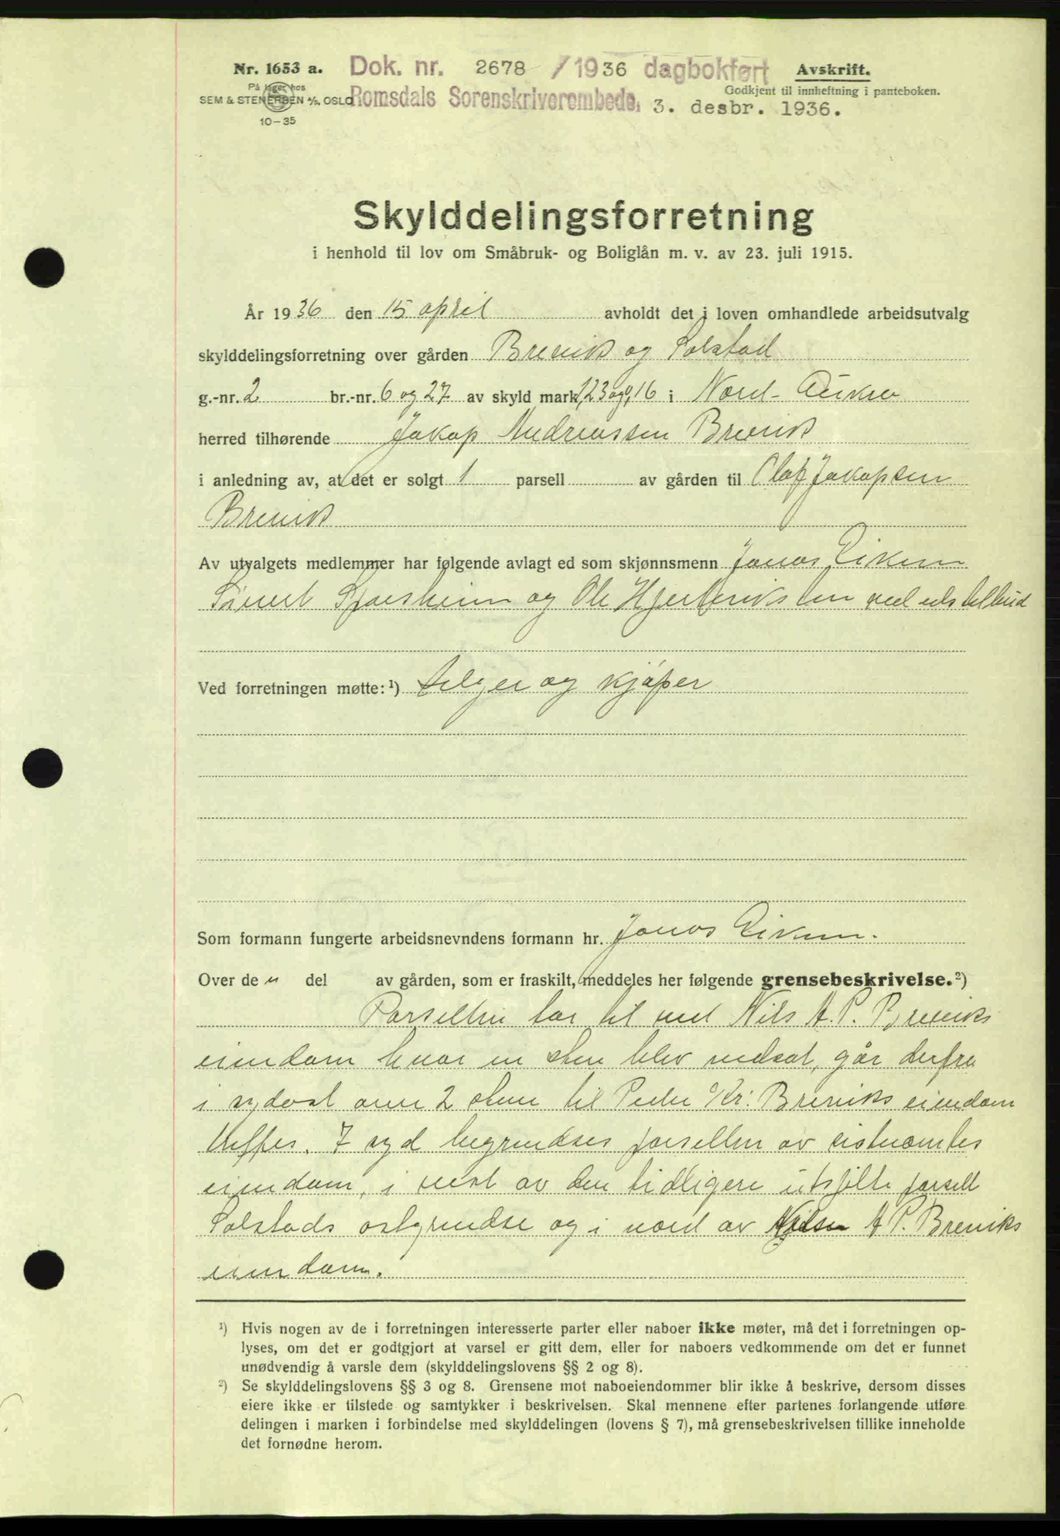 Nr. 1653 a. Dok. nr. 2678 / 1936 dagbokført Avskrift.
På lager hos
Godkjent til innheftning i panteboken.
SEM & STENERSEN A/S, OSLO Romsdals Sorenskriverembede, 3. desbr. 1936.
10-35
Skylddelingsforretning
i henhold til lov om Småbruk- og Boliglån m. v. av 23. juli 1915.
År 1936 den 15 april avholdt det i loven omhandlede arbeidsutvalg
skylddelingsforretning over gården Brevik og Solstad
g.-nr. 2 br.-nr. 6 og 27 av skyld mark 1,23 og 0,16 i Nord-Aukra
herred tilhørende Jakop Andreassen Brevik
i anledning av, at det er solgt 1 parsell av gården til Olaf Jakopsen
Brevik
Av utvalgets medlemmer har følgende avlagt ed som skjønnsmenn Jonas Eikrem
Sivert Sporsheim og Ole Hjertvikslien ved edstilbud
Ved forretningen møtte: ¹) selger og kjøper
Som formann fungerte arbeidsnevndens formann hr. Jonas Eikrem.
Over den del av gården, som er fraskilt, meddeles her følgende grensebeskrivelse. ²)
Parsellen tar til ved Nils A. P. Breviks
eiendom hvor en sten blev nedsat, går derfra
i sydost over 2 stene til Peder Kr. Breviks eiendom
7 syd begrendses parsellen av sistnevntes
eiendom, i vest av den tidligere utskilte parsell
Solstads ostgrendse og i nord av Nils A P. Breviks
eiendom.
¹) Hvis nogen av de i forretningen interesserte parter eller naboer ikke møter, må det i forretningen op-
lyses, om det er godtgjort at varsel er gitt dem, eller for naboers vedkommende om det er funnet
unødvendig å varsle dem (skylddelingslovens §§ 2 og 8).
²) Se skylddelingslovens §§ 3 og 8. Grensene mot naboeiendommer blir ikke å beskrive, dersom disses
eiere ikke er tilstede og samtykker i beskrivelsen. Skal mennene efter partenes forlangende utføre
delingen i marken i forbindelse med skylddelingen (lovens § 7), må grensebeskrivelsen tillike inneholde
det fornødne herom.